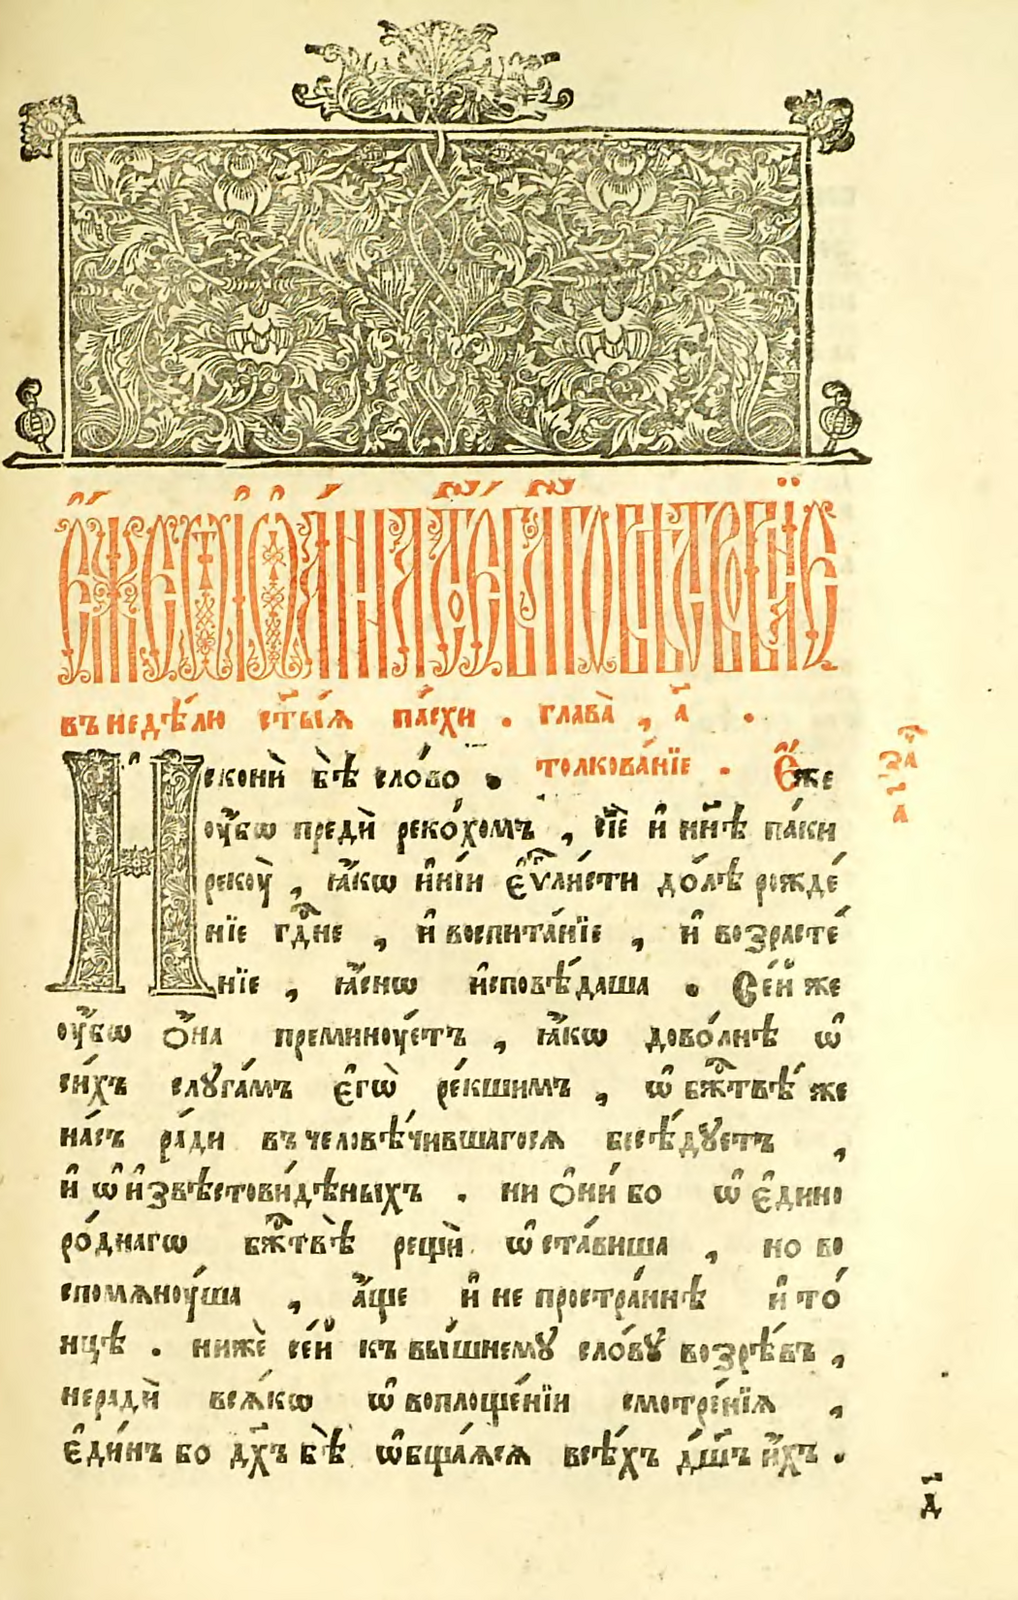 Е҆́же ѿ і҆ѡа́нна ст҃а́гѡ є҆ѵⷢ҇лїа
въ недѣ́лю ст҃ы́ѧ па́схи . глава̀ , а҃ .
И҆сконѝ бѣ̀ сло́во . толкова́нїе . Є҆́же
оу҆́бѡ предѝ реко́хомъ , сїѐ и҆ нн҃ѣ па́ки
рекоу̀ , ꙗ҆́кѡ и҆ні́и є҆ѵⷢ҇ли́сти до́лѣ рожде́
нїе гдⷭ҇не , и҆ воспита́нїе , и҆ возрасте́
нїе , ꙗ҆́снѡ и҆сповѣ́даша . Се́й же
оу҆́бѡ ѻ҆́на премину́етъ , ꙗ҆́кѡ дово́лнѣ ѡ҆
си́хъ слꙋга́мъ є҆гѡ̀ ре́кшимъ , ѡ҆ бжⷭ҇твѣ́ же
на́съ ра́ди въчеловѣ́чившагосѧ бесѣ́дꙋетъ ,
и҆ ѡ҆ и҆звѣстови́дѣныхъ . ни ѻ҆ни́ бо ѡ҆ є҆дино
ро́днагѡ бжⷭ҇твѣ̀ рещѝ ѡ҆ста́виша , но во
спомѧноу́ша , а҆́ще и҆ не простра́ннѣ и҆ то́
нцѣ . нижѐ се́й къ вы́шнемꙋ сло́вꙋ возрѣ́въ ,
нерадѝ всѧ́кѡ ѡ҆ воплоще́нїи смотре́нїѧ ,
є҆ди́нъ бо дх҃ъ бѣ̀ ѡ҆бща́ѧсѧ всѣ́хъ дш҃ъ и҆́хъ .
за҃ч
а҃
д҃